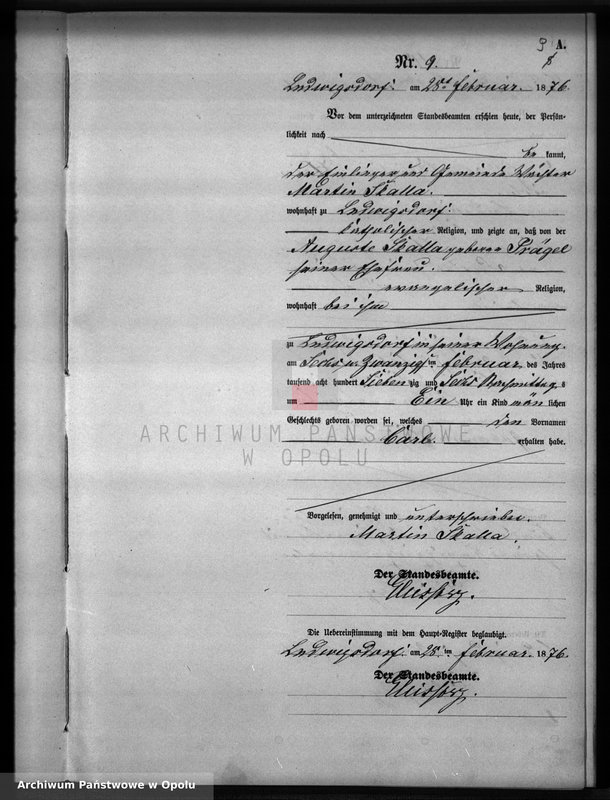 9 A.
Nr. 9.
Ludwigsdorf am 28ten Februar 1876.
Vor dem unterzeichneten Standesbeamten erschien heute, der Persön-
lichkeit nach
be kannt,
der Einlieger und Gemeinde Wächter
Martin Skalla.
wohnhaft zu Ludwigsdorf
katholischer Religion, und zeigte an, daß von der
Auguste Skalla geborne Prägel
seiner Ehefrau.
evangelischer Religion,
wohnhaft bei ihm
zu Ludwigsdorf in seiner Wohnung.
am Sechs u. Zwanzigsten Februar des Jahres
tausend acht hundert Sieben zig und Sechs Vormittags
um Ein Uhr ein Kind män lichen
Geschlechts geboren worden sei, welches den Vornamen
Carl. erhalten habe.
Vorgelesen, genehmigt und unterschrieben.
Martin Skalla.
Der Standesbeamte.
Die Uebereinstimmung mit dem Haupt-Register beglaubigt.
Ludwigsdorf am 28ten Februar 1876.
Der Standesbeamte.
ARCHIWUM PAŃSTWOWE
W OPOLU
Archiwum Państwowe w Opolu